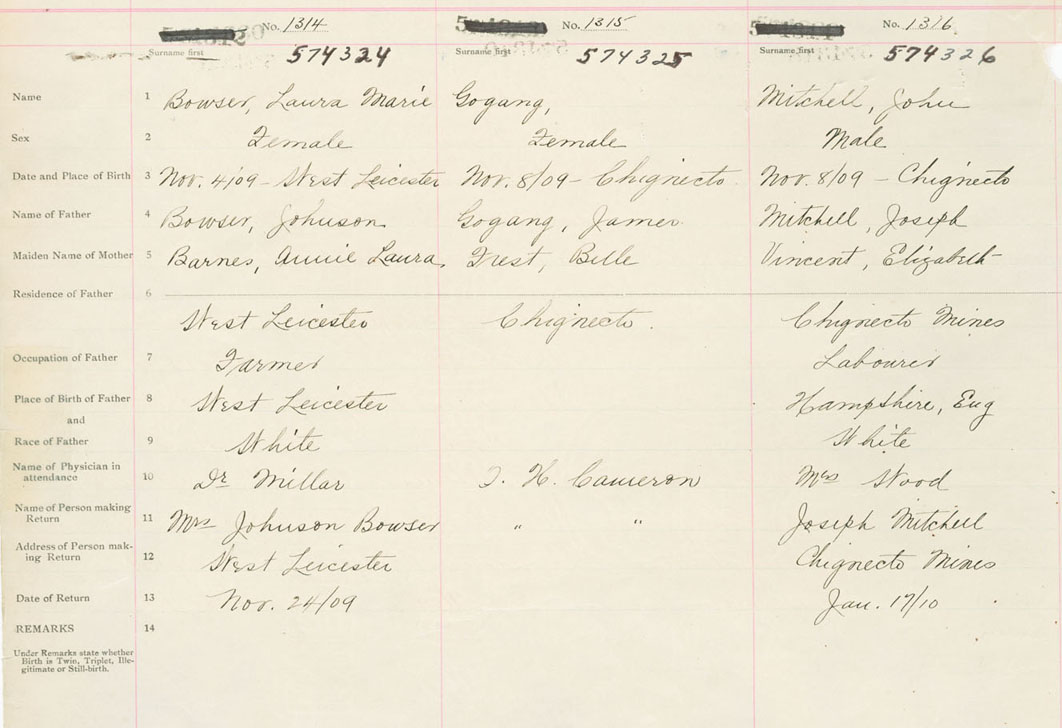 No. 1314 No. 1315 No. 1316
Surname first 574324 Surname first 574325 Surname first 574326
Name 1 Bowser, Laura Marie Gogang, Mitchell, John
Sex 2 Female Female Male
Date and Place of Birth 3 Nov. 4/09 - West Leicester Nov. 8/09 - Chignecto. Nov. 8/09 - Chignecto
Name of Father 4 Bowser, Johnson Gogang, James Mitchell, Joseph
Maiden Name of Mother 5 Barnes, Annie Laura, Belle Vincent, Elizabeth
Residence of Father 6
West Leicester Chignecto. Chignecto Mines
Occupation of Father 7 Farmer Labourer
Place of Birth of Father 8 West Leicester Hampshire, Eng
and
Race of Father 9 White White
Name of Physician in
attendance 10 Dr Millar H. Cameron Mrs Wood
Name of Person making
Return 11 Mrs Johnson Bowser " " Joseph Mitchell
Address of Person mak-
ing Return 12 West Leicester Chignecto Mines
Date of Return 13 Nov. 24/09 Jan. 17/10
REMARKS 14
Under Remarks state whether
Birth is Twin, Triplet, Ille-
gitimate or Still-birth.